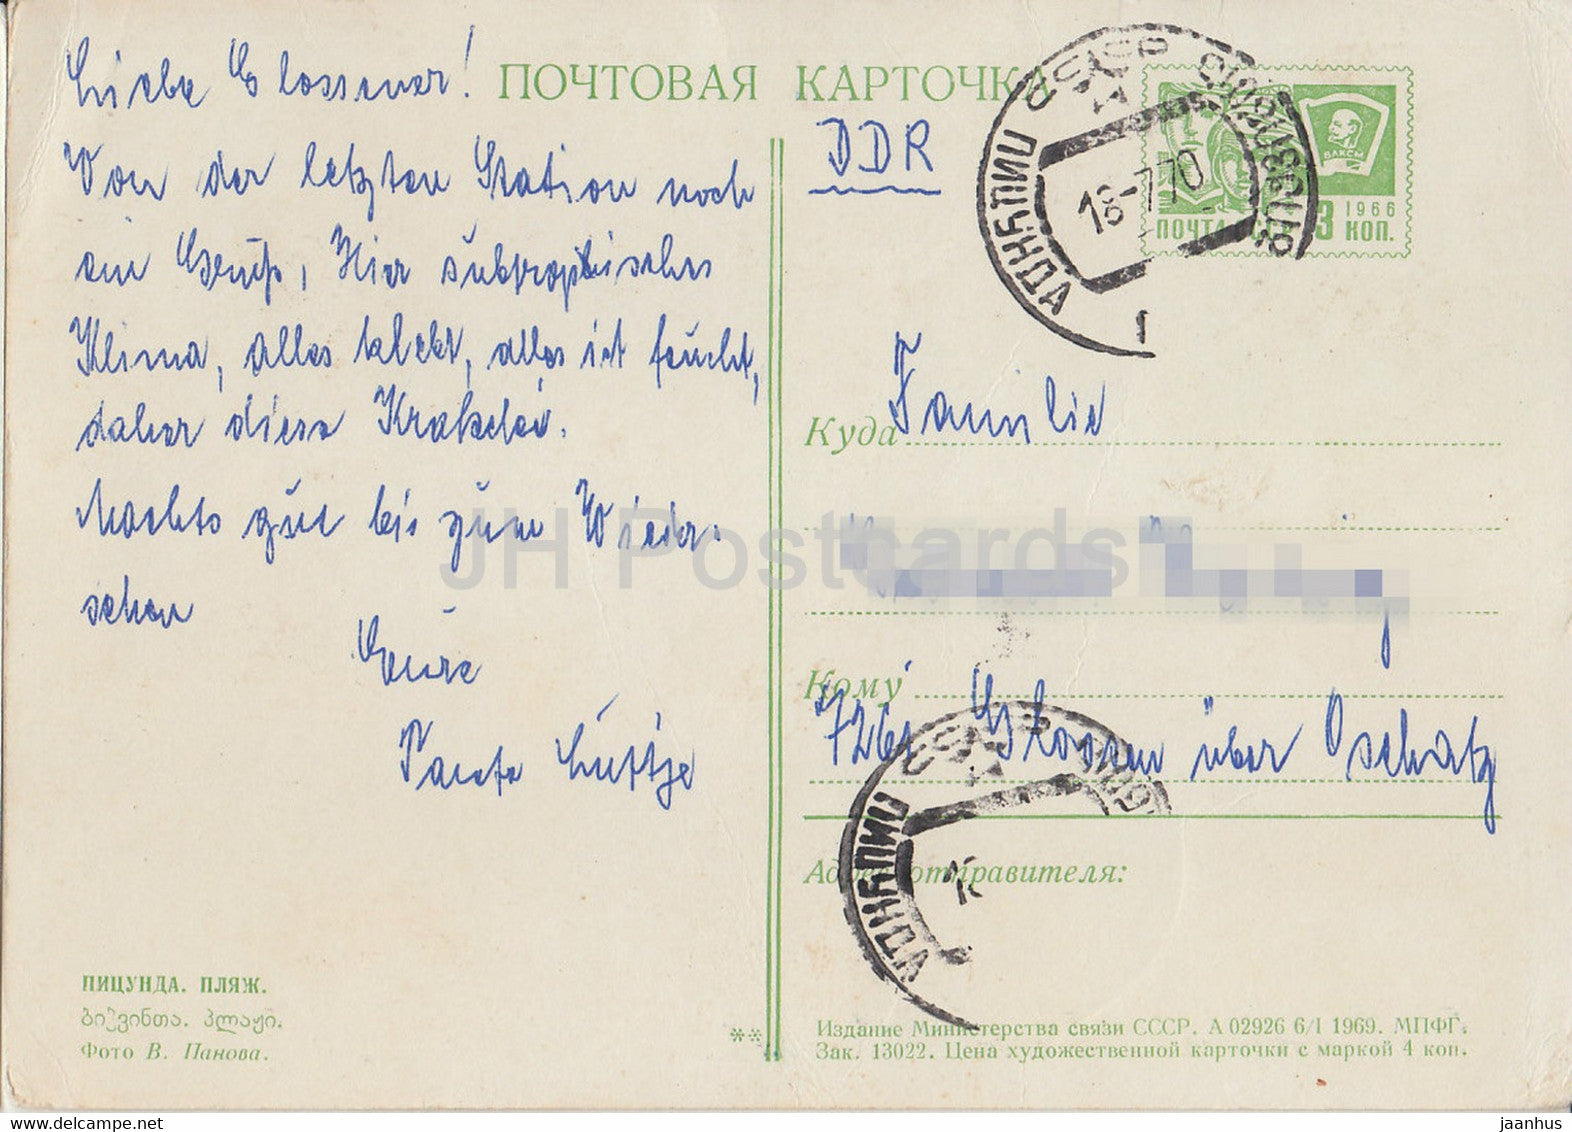 Liebe Glossener!
Von der letzten Station noch
ein Gruß, Hier subtropisches
Klima, alles klebt, alles ist feucht,
daher diese Krakelei.
Machts gut bis zum Wieder-
sehen
Eure
Tante Luttje
ПОЧТОВАЯ КАРТОЧКА
DDR
18-7 70
ВЛКСМ
1966
ПОЧТА СССР 3 КОП.
ПИЦУНДА
Куда
Familie
Кому
7261 Glossen über Oschatz
Адрес отправителя:
ПИЦУНДА
ПИЦУНДА. ПЛЯЖ.
ბიჭვინთა. პლაჟი.
Фото В. Панова.
**
Издание Министерства связи СССР. А 02926 6/I 1969. МПФГ.
Зак. 13022. Цена художественной карточки с маркой 4 коп.
JH Postcards
www.delcampe.net
jaanhus